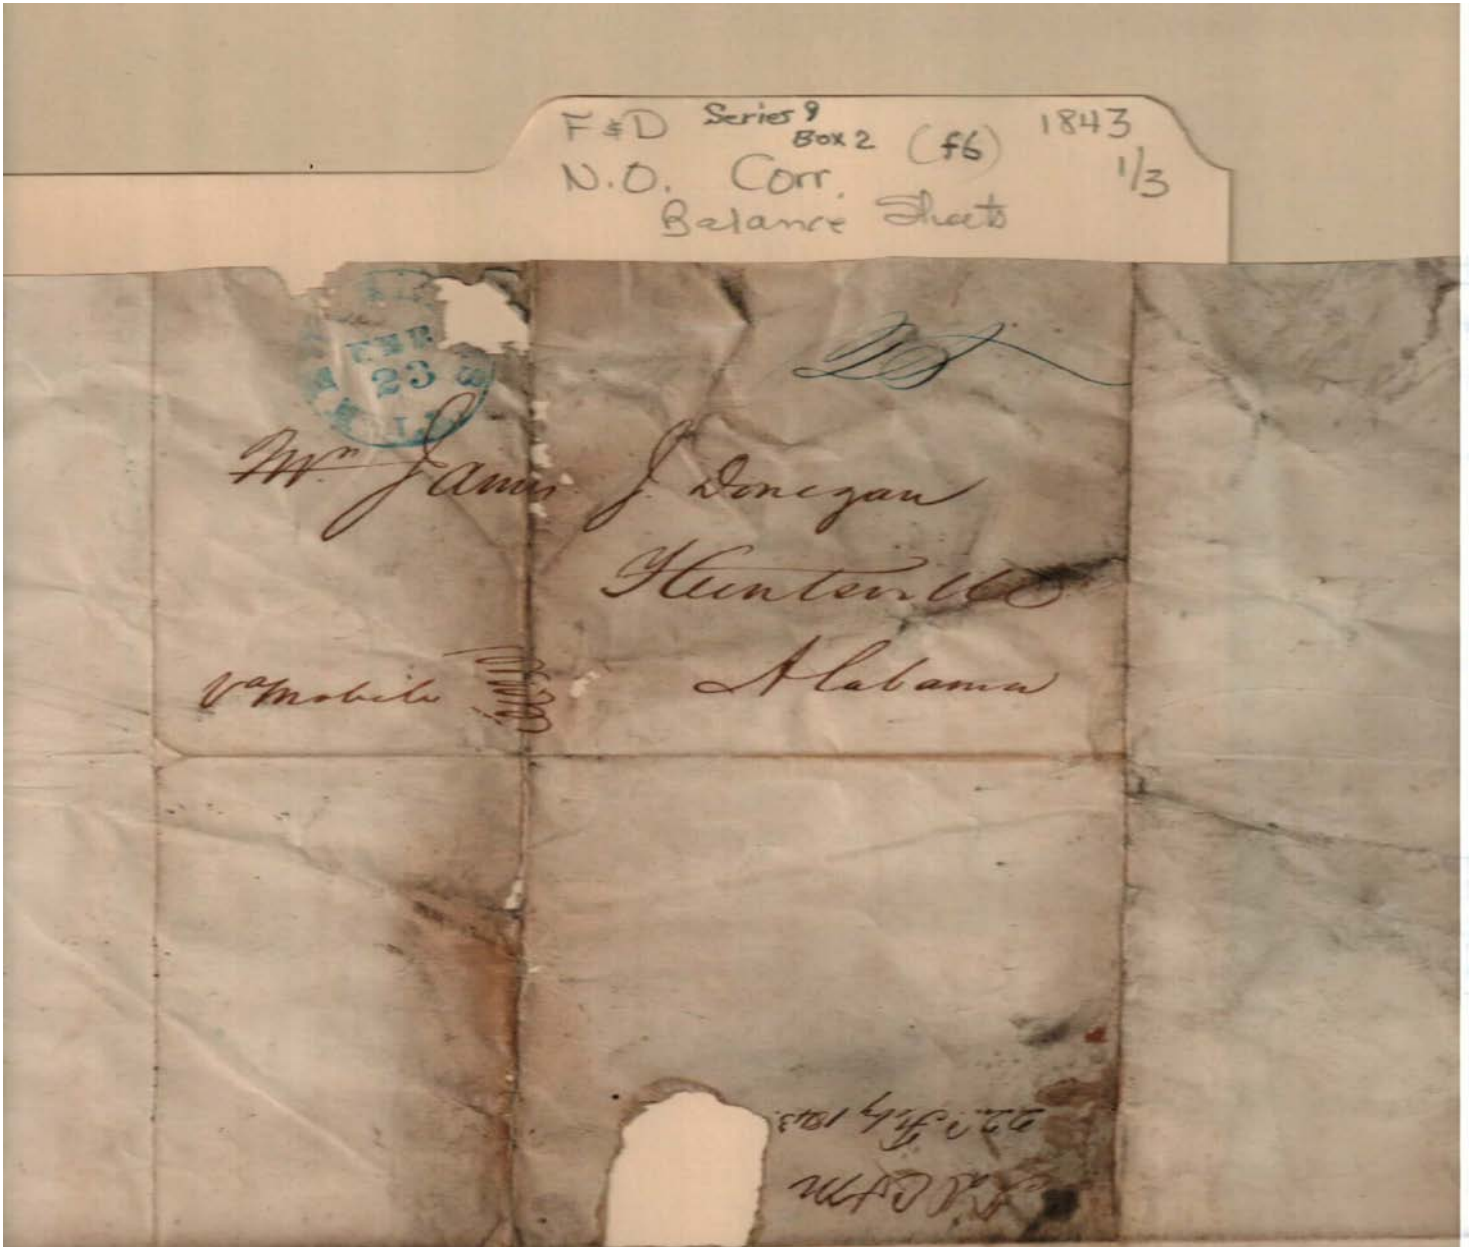 F & D Series 9 Box 2 (f6) 1843
N.O. Corr. 1/3
Balance Sheets
FEB
23
Mr. James J. Donegan
Huntsville
Va Mobile
Alabama
22d. Feby 1843.